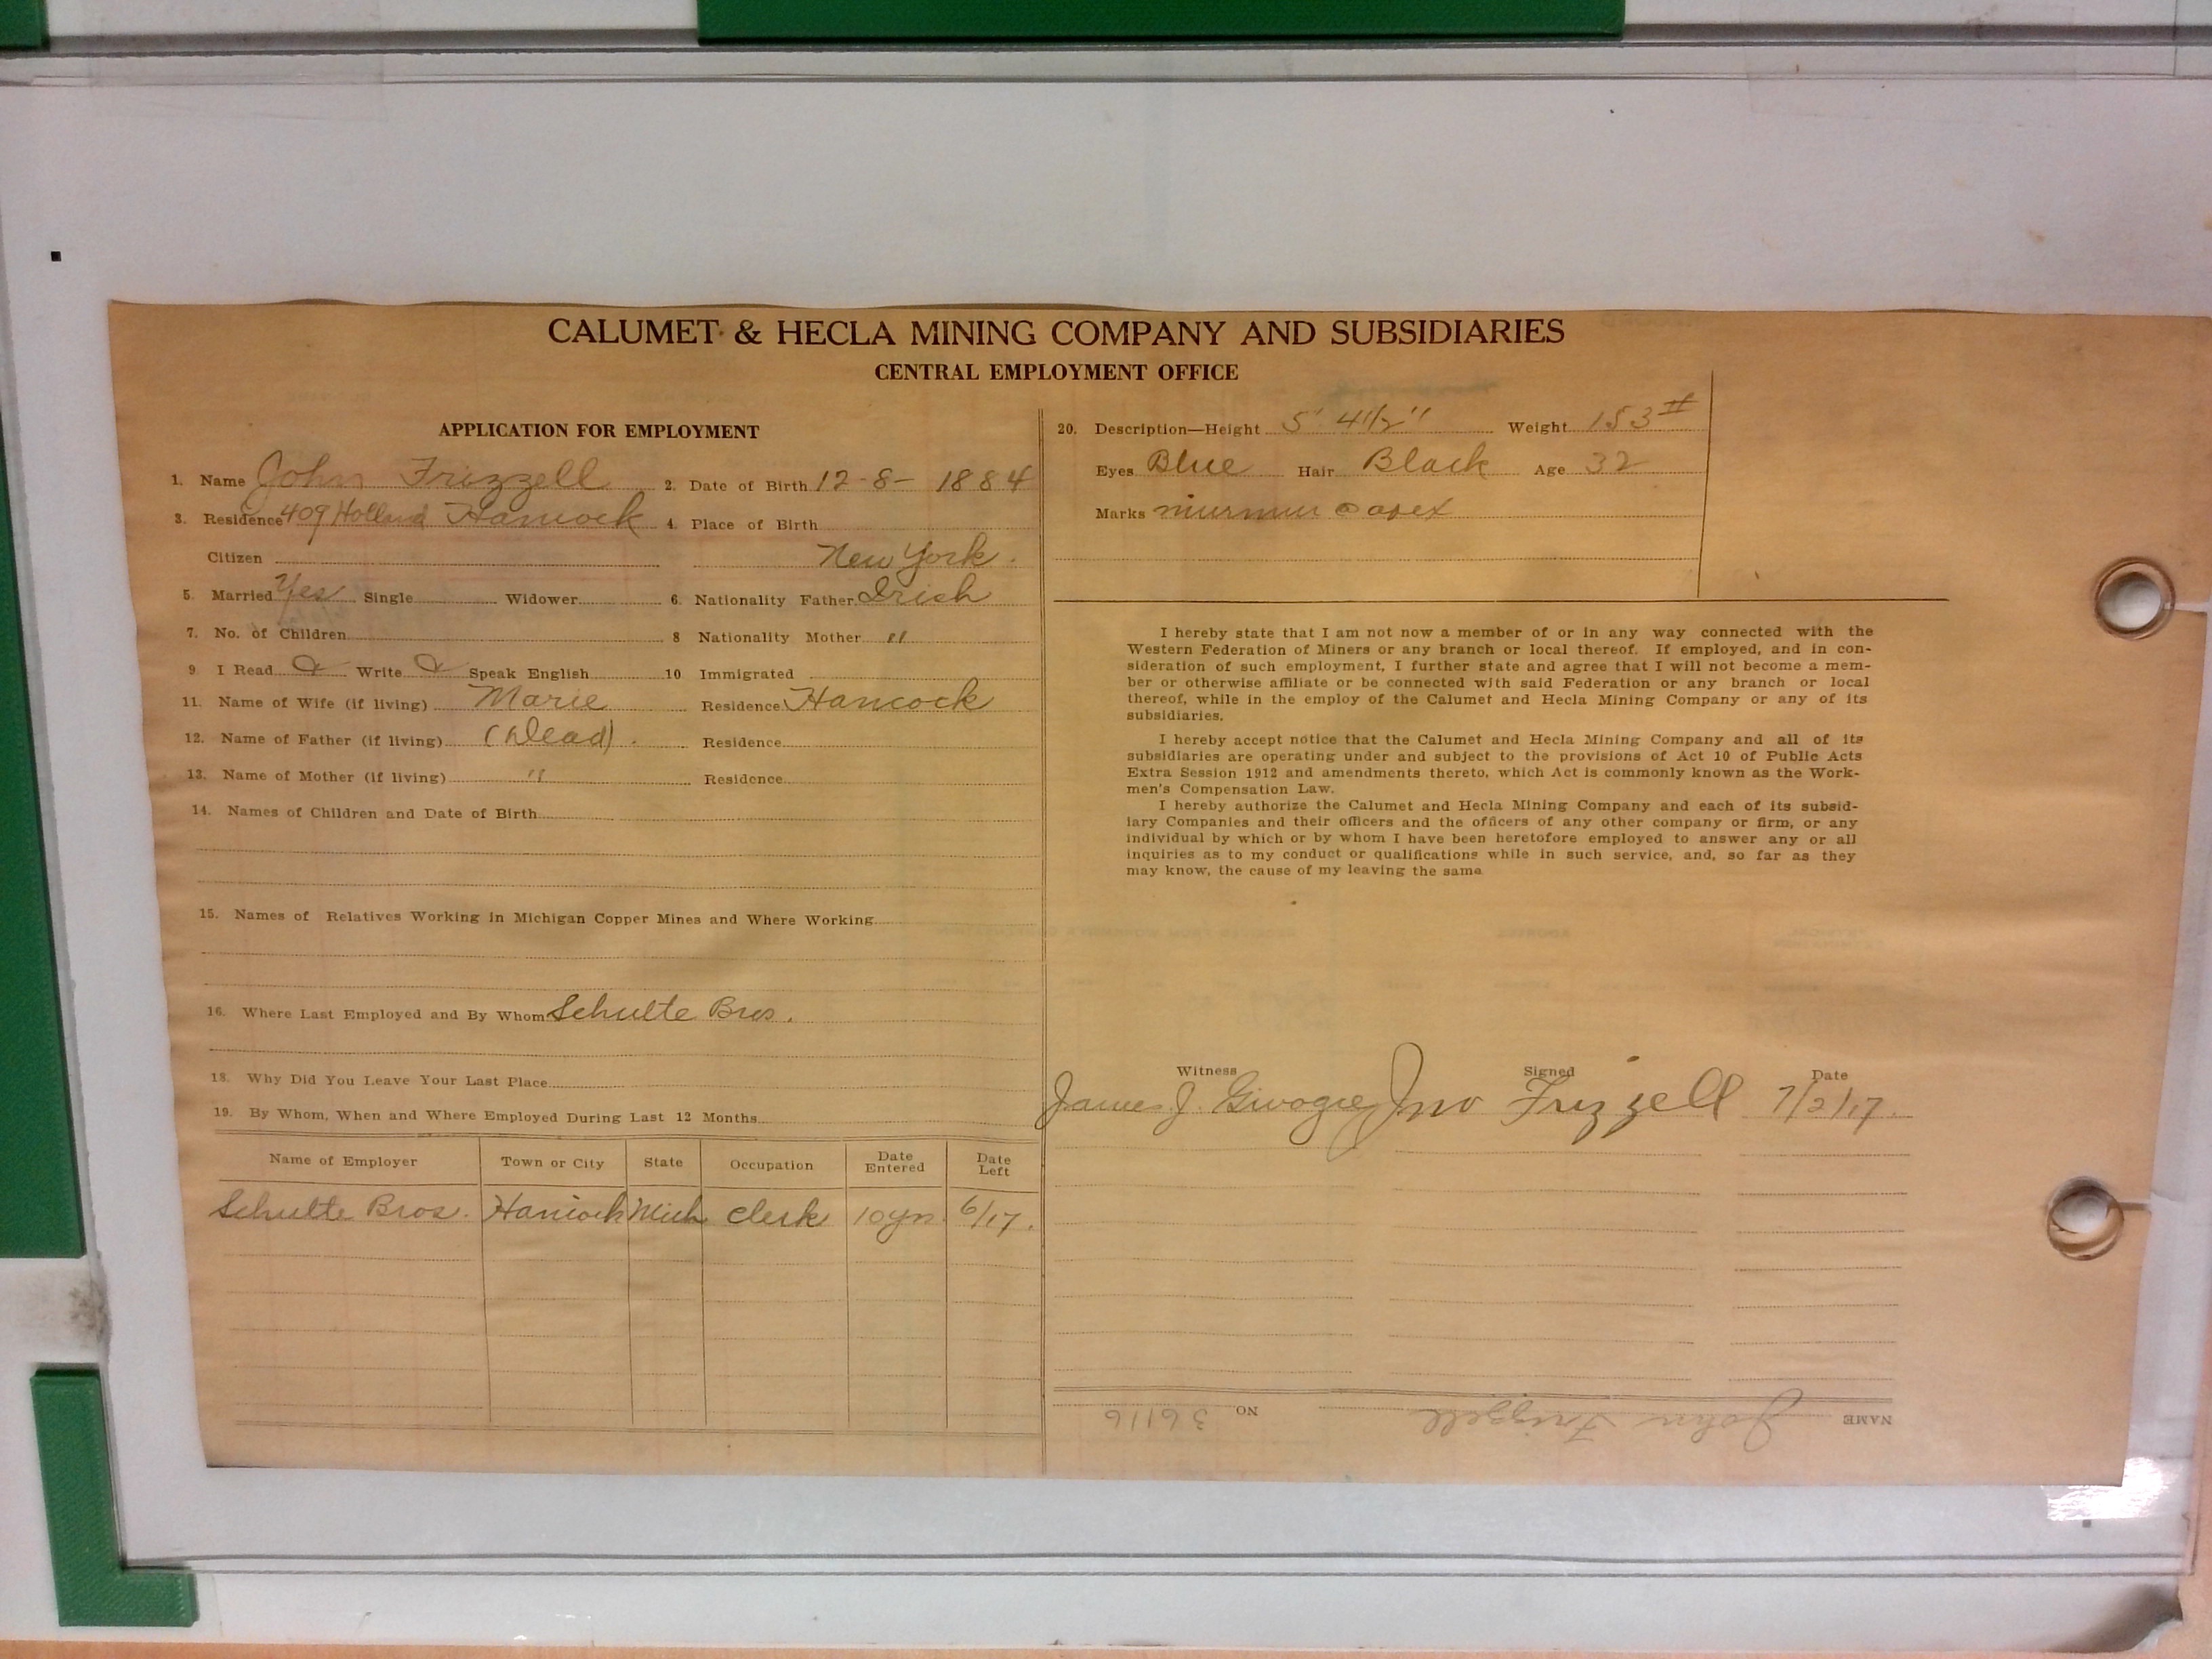 CALUMET & HECLA MINING COMPANY AND SUBSIDIARIES
CENTRAL EMPLOYMENT OFFICE
APPLICATION FOR EMPLOYMENT
1. Name John Frizzell 2. Date of Birth 12-8- 1884
3. Residence 409 Holland Hancock 4. Place of Birth
Citizen New York.
5. Married Yes Single Widower 6. Nationality Father Irish
7. No. of Children 8 Nationality Mother "
9. I Read & Write & Speak English 10 Immigrated
11. Name of Wife (if living) Marie Residence Hancock
12. Name of Father (if living) (Dead). Residence
13. Name of Mother (if living) " Residence
14. Names of Children and Date of Birth
15. Names of Relatives Working in Michigan Copper Mines and Where Working
16. Where Last Employed and By Whom Schulte Bros.
18. Why Did You Leave Your Last Place
19. By Whom, When and Where Employed During Last 12 Months
Name of Employer Town or City State Occupation Date Entered Date Left
Schulte Bros. Hancock Mich clerk 10 yrs. 6/17.
20. Description—Height 5' 4 1/2" Weight 153 #
Eyes Blue Hair Black Age 32
Marks murmur @ apex
I hereby state that I am not now a member of or in any way connected with the
Western Federation of Miners or any branch or local thereof. If employed, and in con-
sideration of such employment, I further state and agree that I will not become a mem-
ber or otherwise affiliate or be connected with said Federation or any branch or local
thereof, while in the employ of the Calumet and Hecla Mining Company or any of its
subsidiaries.
I hereby accept notice that the Calumet and Hecla Mining Company and all of its
subsidiaries are operating under and subject to the provisions of Act 10 of Public Acts
Extra Session 1912 and amendments thereto, which Act is commonly known as the Work-
men's Compensation Law.
I hereby authorize the Calumet and Hecla Mining Company and each of its subsid-
iary Companies and their officers and the officers of any other company or firm, or any
individual by which or by whom I have been heretofore employed to answer any or all
inquiries as to my conduct or qualifications while in such service, and, so far as they
may know, the cause of my leaving the same
Witness Signed Date
James J. Jno Frizzell 7/2/17.
NAME John Frizzell NO. 36116